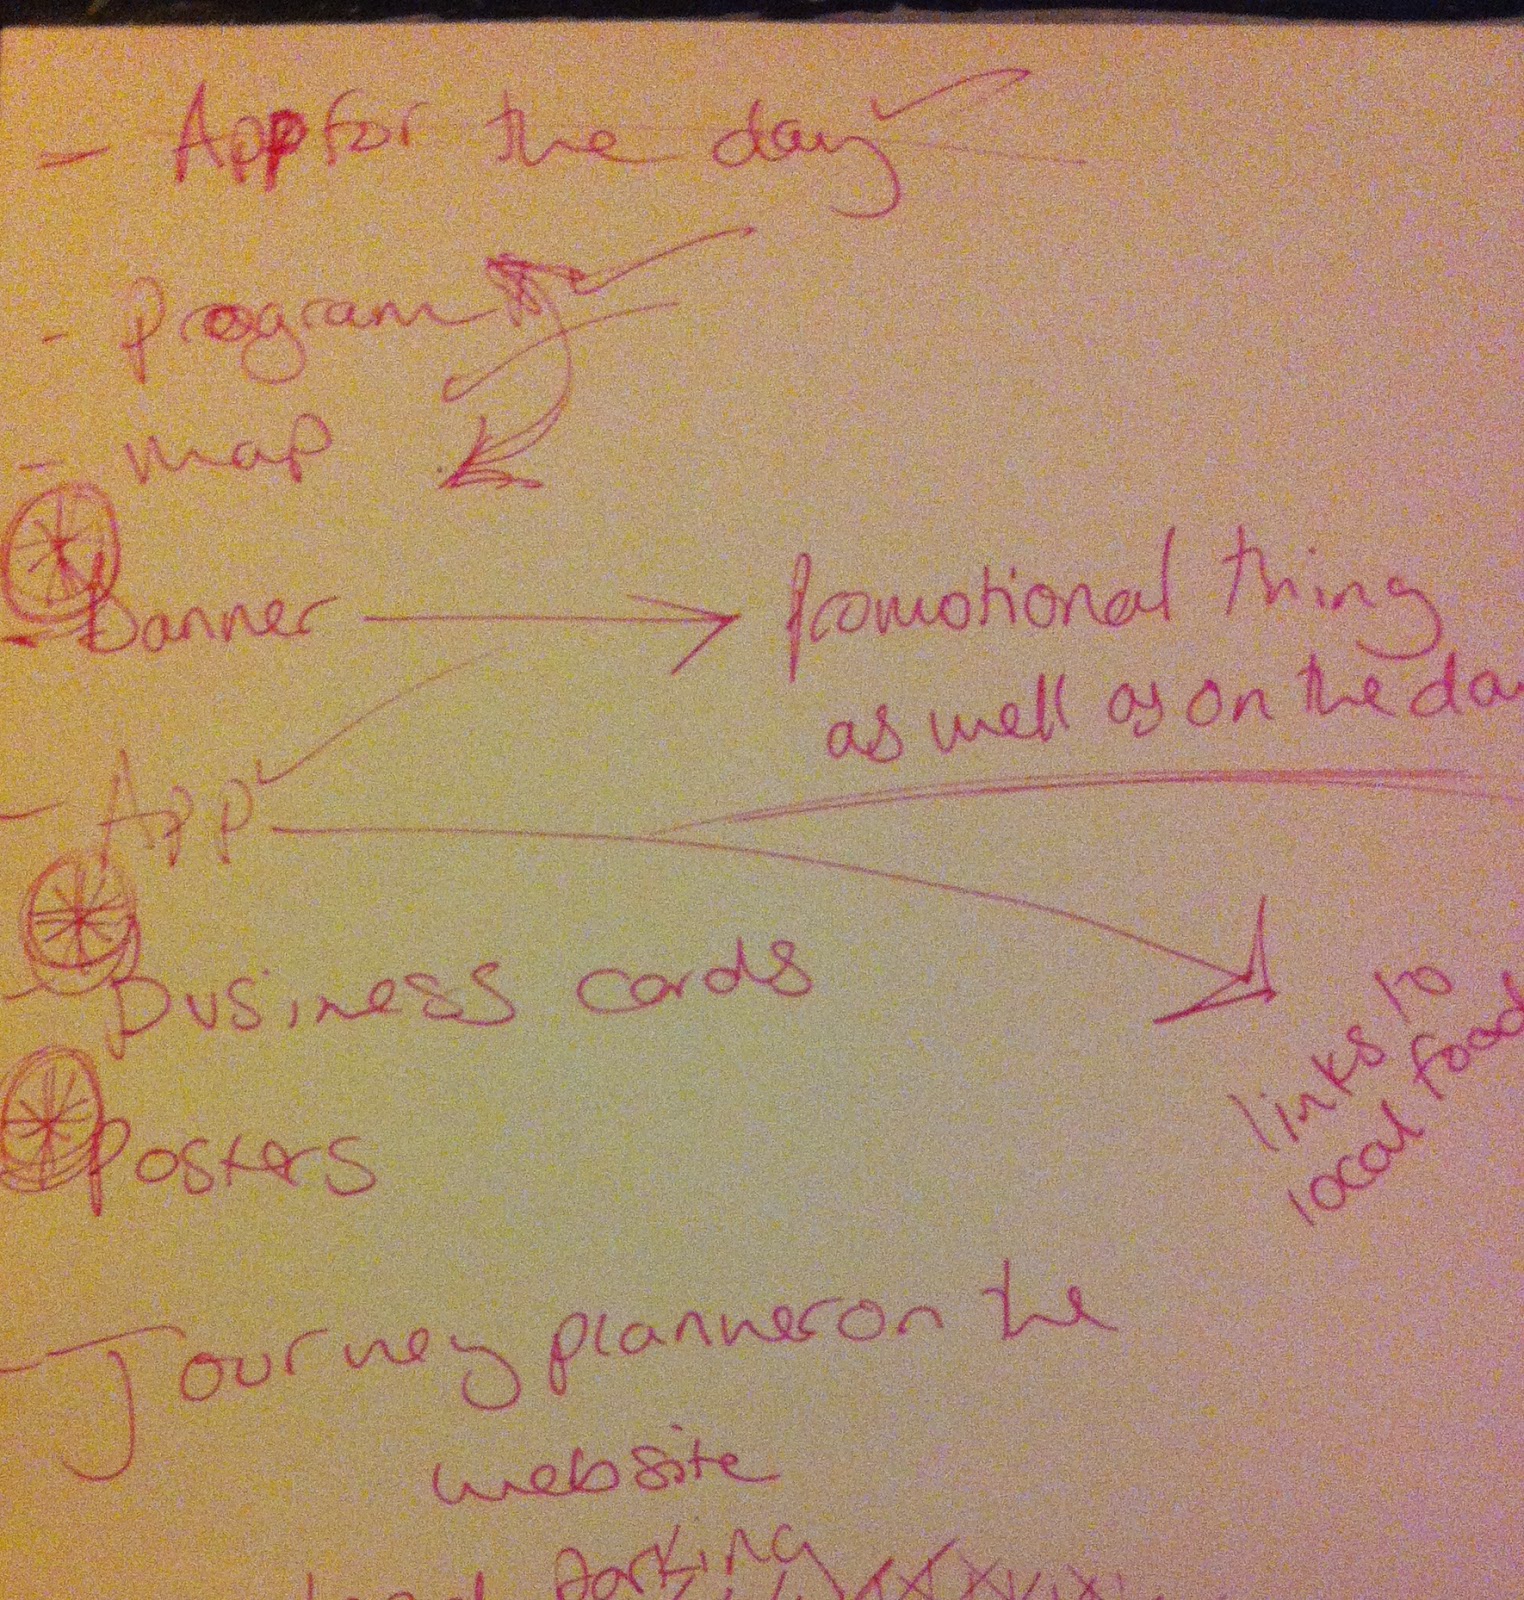 - App for the day
- Program
- map
- banner → promotional thing
as well as on the da
- App
links to
local food
- Business cards
Posters
- Journey planner on the
website
parking